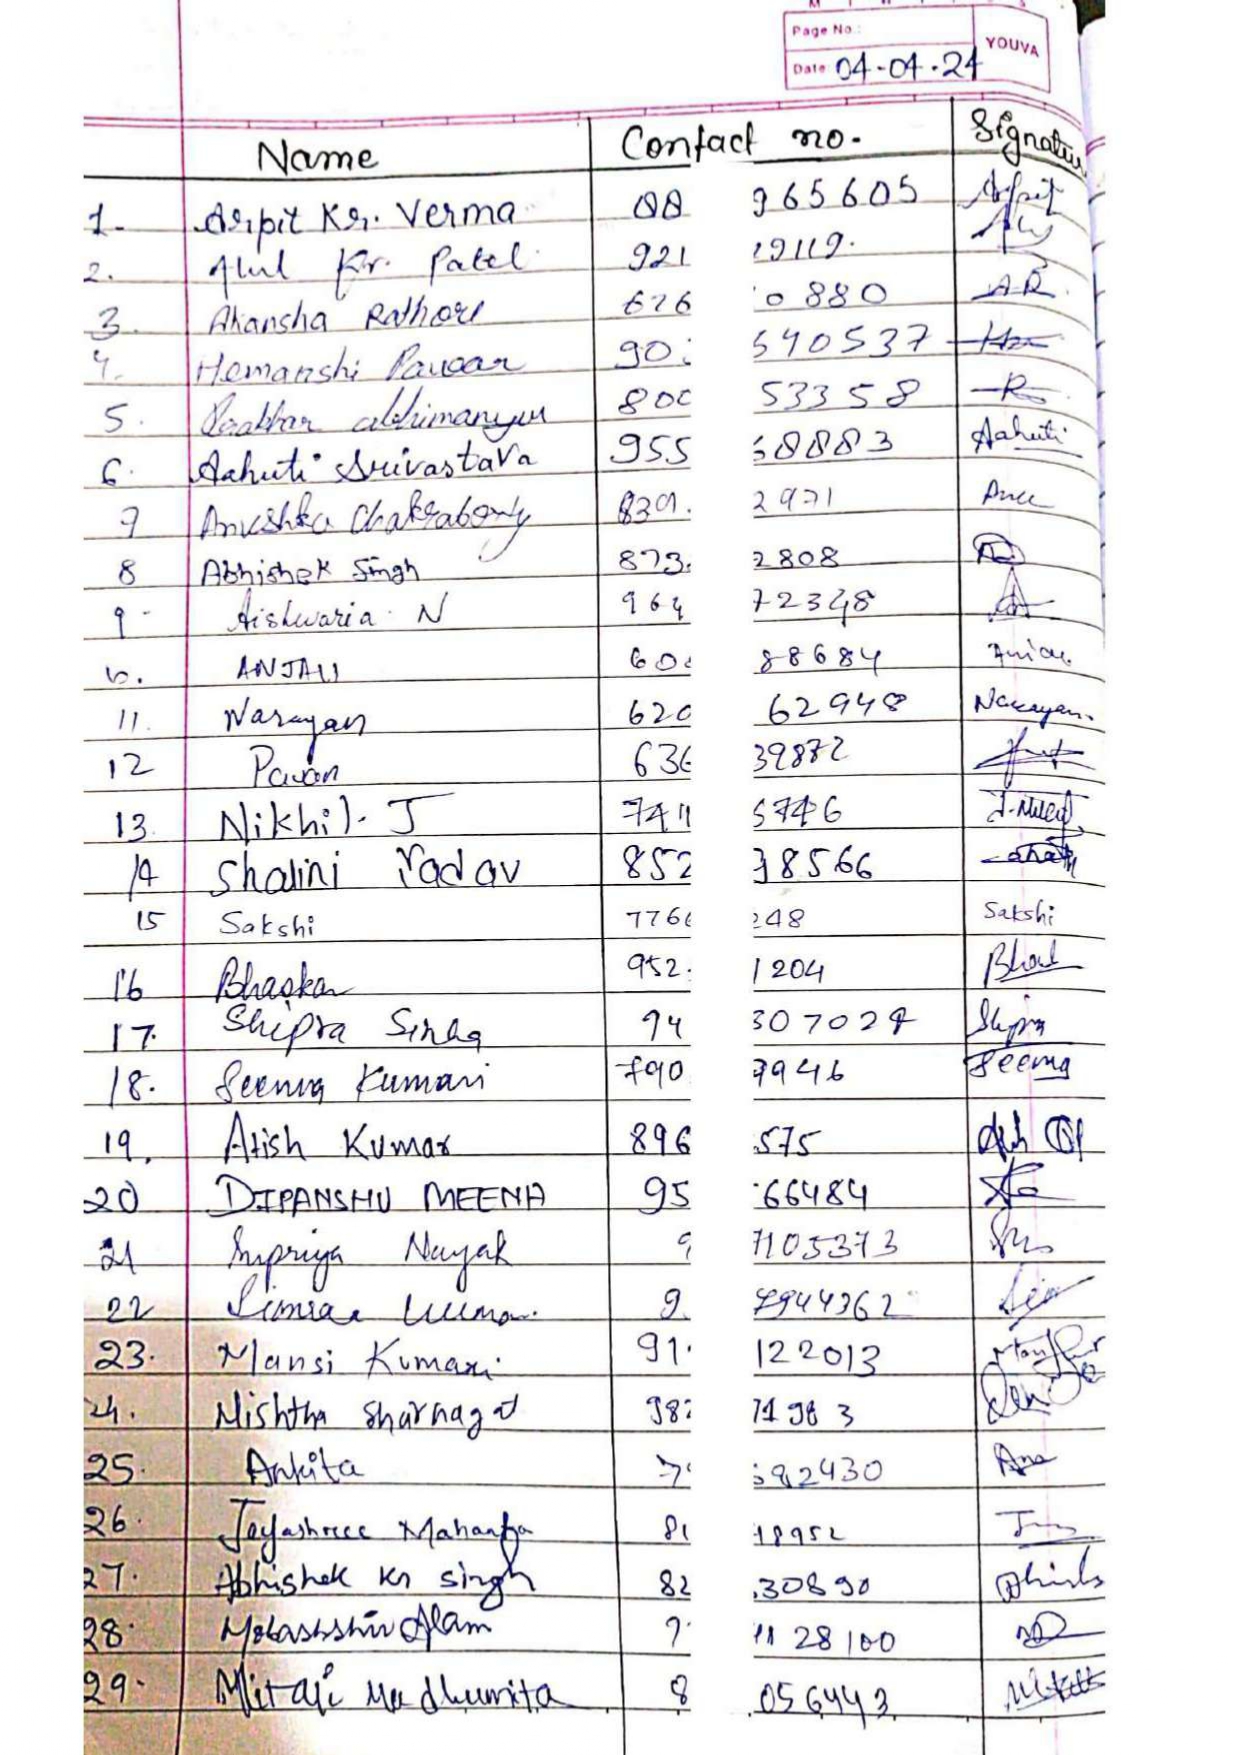 Page No.:
YOUVA
Date: 04-04-24
Name Contact no. Signature
1. Arpit Kr. Verma 88 965605 Arpit
2. Atul Kr. Patel 921 29119.
3. Akansha Rathore 626 0880 A.R.
4. Hemanshi Pawar 90 540537
5. abhimanyu 800 53358
6. Aahuti Srivastava 955 58883 Aahuti
7 Anushka Chakraborty 839 2971
8 Abhishek Singh 873 2808
9 Aishwaria N 964 72348
10. ANJALI 60 88684
11. Narayan 620 62948 Narayan
12 Pavan 636 39872
13. Nikhil. J 741 5746
14 Shalini Yadav 852 38566
15 Sakshi 7766 248 Sakshi
16 Bhaskar 952 1204
17. Shipra Sinha 94 307027 Shipra
18. Seema Kumari 790 7946 Seema
19. Atish Kumar 896 575
20 DIPANSHU MEENA 95 66484
21 Supriya Nayak 9 7105373
22 Simran 9 7944362
23. Mansi Kumari 91 122013
24. Nishtha Sharnagat 982 74983
25. Ankita 7 582430
26. Jayashree Mahanta 81 18952
27. Abhishek Kr Singh 82 30890
28. Alam 7 28100
29. Mitali Madhumita 8 056443